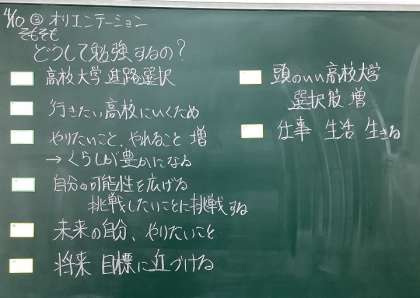 4/10 ③ オリエンテーション
そもそも
どうして勉強するの?
高校大学進路選択
行きたい高校にいくため
やりたいこと、やれること 増
→くらしが豊かになる
自分の可能性を広げる
挑戦したいことに挑戦する
未来の自分、やりたいこと
将来 目標に近づける
頭のいい高校大学
選択肢 増
仕事 生活 生きる